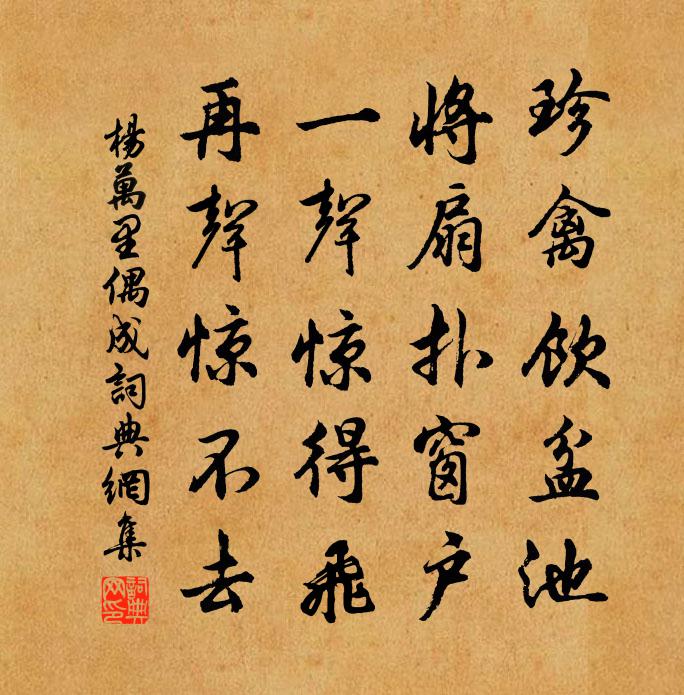 珍禽飲盆池
將扇扑窗户
一聲惊得飛
再聲惊不去
楊萬里偶成詞典網集
詞典
网印